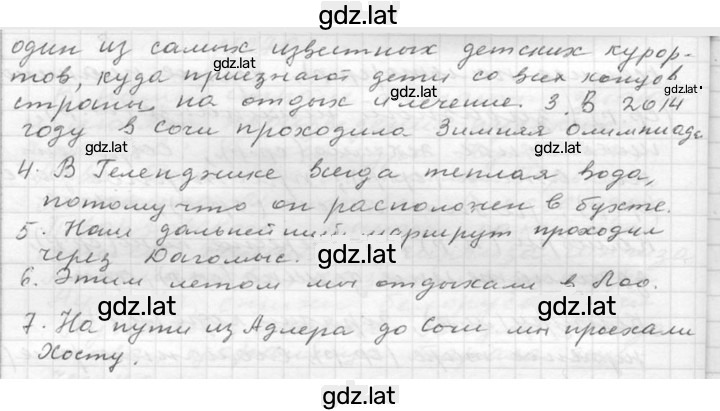 gdz.lat
один из самых известных детских курор-
тов, куда приезжают дети со всех концов
gdz.lat gdz.lat
страны на отдых и лечение. 3. В 2014
году в Сочи проходила Зимняя Олимпиада
gdz.lat gdz.lat
4. В Геленджике всегда теплая вода,
потому что он расположен в бухте.
5. Наш дальнейший маршрут проходил
gdz.lat
через Дагомыс.
6. Этим летом мы отдыхали в Лоо.
gdz.lat gdz.lat
7. На пути из Адлера до Сочи мы проехали
Хосту.
gdz.lat gdz.lat
gdz.lat